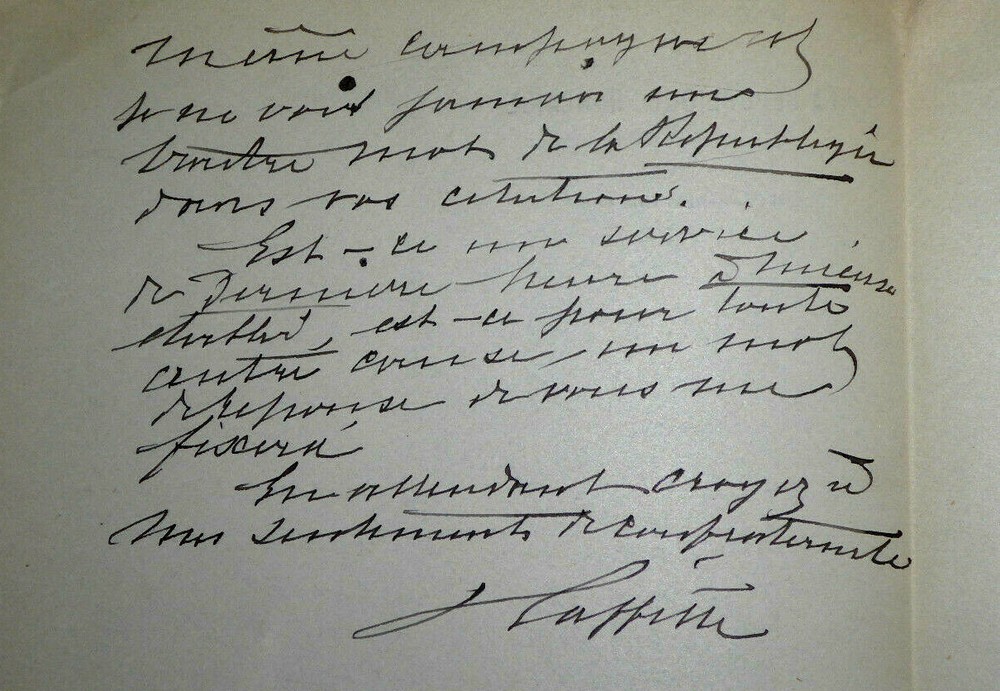 même campagne et
je ne vois jamais un
traître mot de la République
dans vos citations.
Est-ce un service
de dernière heure
établi, est-ce pour toute
autre cause, un mot
de réponse de vous me
fixera
En attendant croyez à
mes sentiments de confraternité
J Laffitte